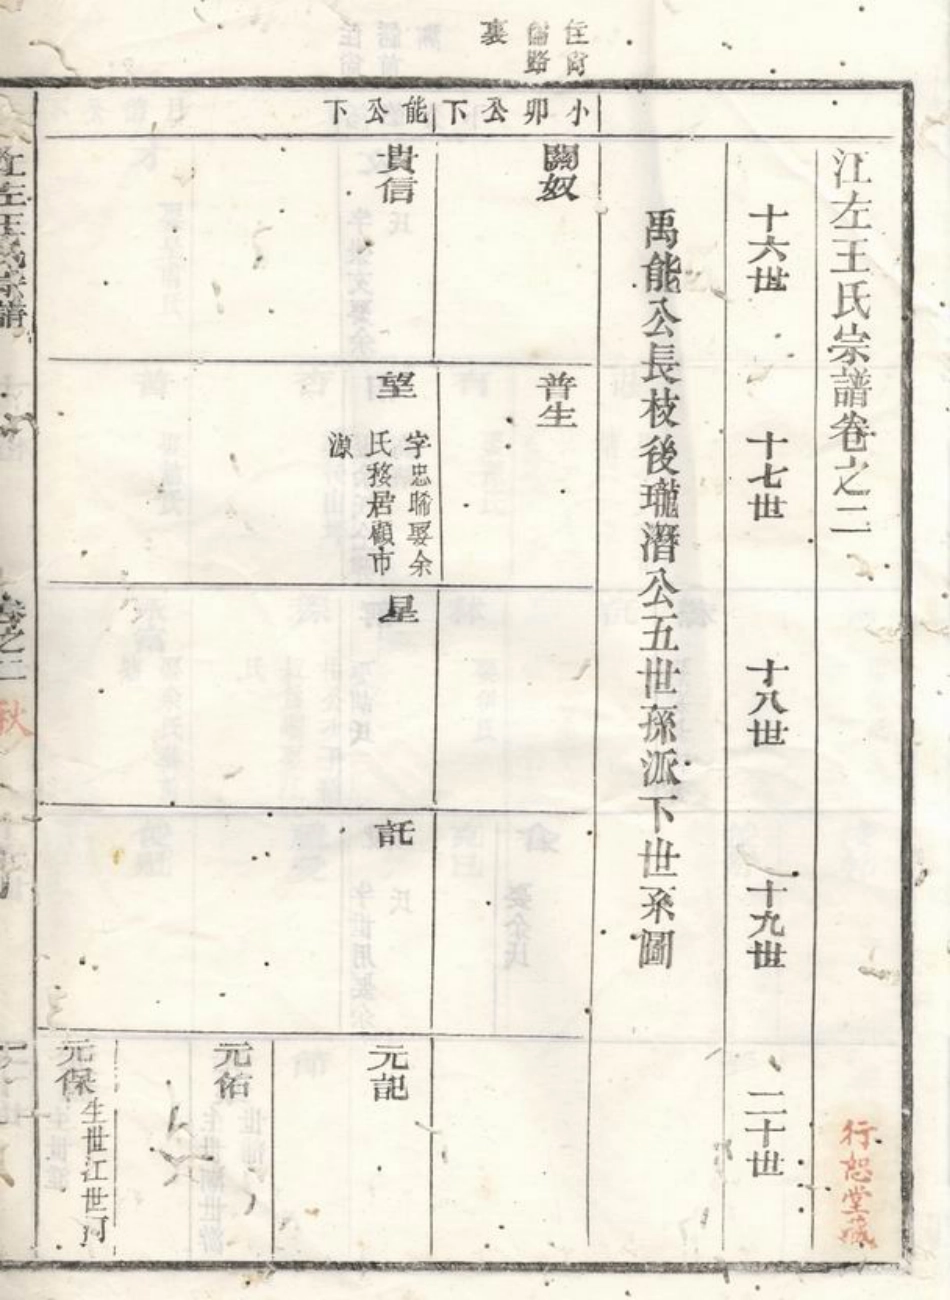 江左王氏宗譜卷之二
行恕堂藏
十六世
十七世
十八世
十九世
二十世
禹能公長枝後瓏潛公五世孫派下世系圖
住前
儒路
裏
小卯公下
能公下
關奴
普生
貴信
望
字忠晞娶余
氏移居顧市
源
星
託
元記
元佑
元保
生世江世河
江左王氏宗譜
卷之二
秋